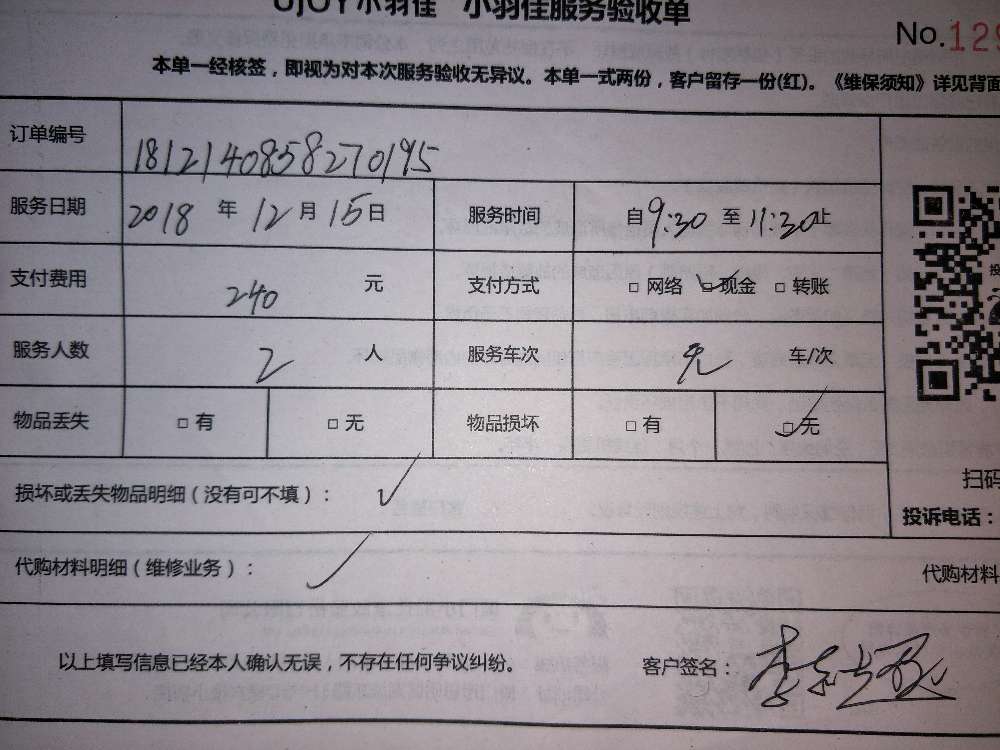 UJOY小羽佳 小羽佳服务验收单
No.129
本单一经核签，即视为对本次服务验收无异议。本单一式两份，客户留存一份(红)。《维保须知》详见背面
订单编号 1812140858270195
服务日期 2018 年 12 月 15 日 服务时间 自 9:30 至 11:30 止
支付费用 240 元 支付方式 □ 网络 □ 现金 □ 转账
服务人数 2 人 服务车次 无 车/次
物品丢失 □ 有 □ 无 物品损坏 □ 有 □ 无
扫码
损坏或丢失物品明细（没有可不填）：
投诉电话：
代购材料明细（维修业务）： 代购材料
以上填写信息已经本人确认无误，不存在任何争议纠纷。 客户签名：